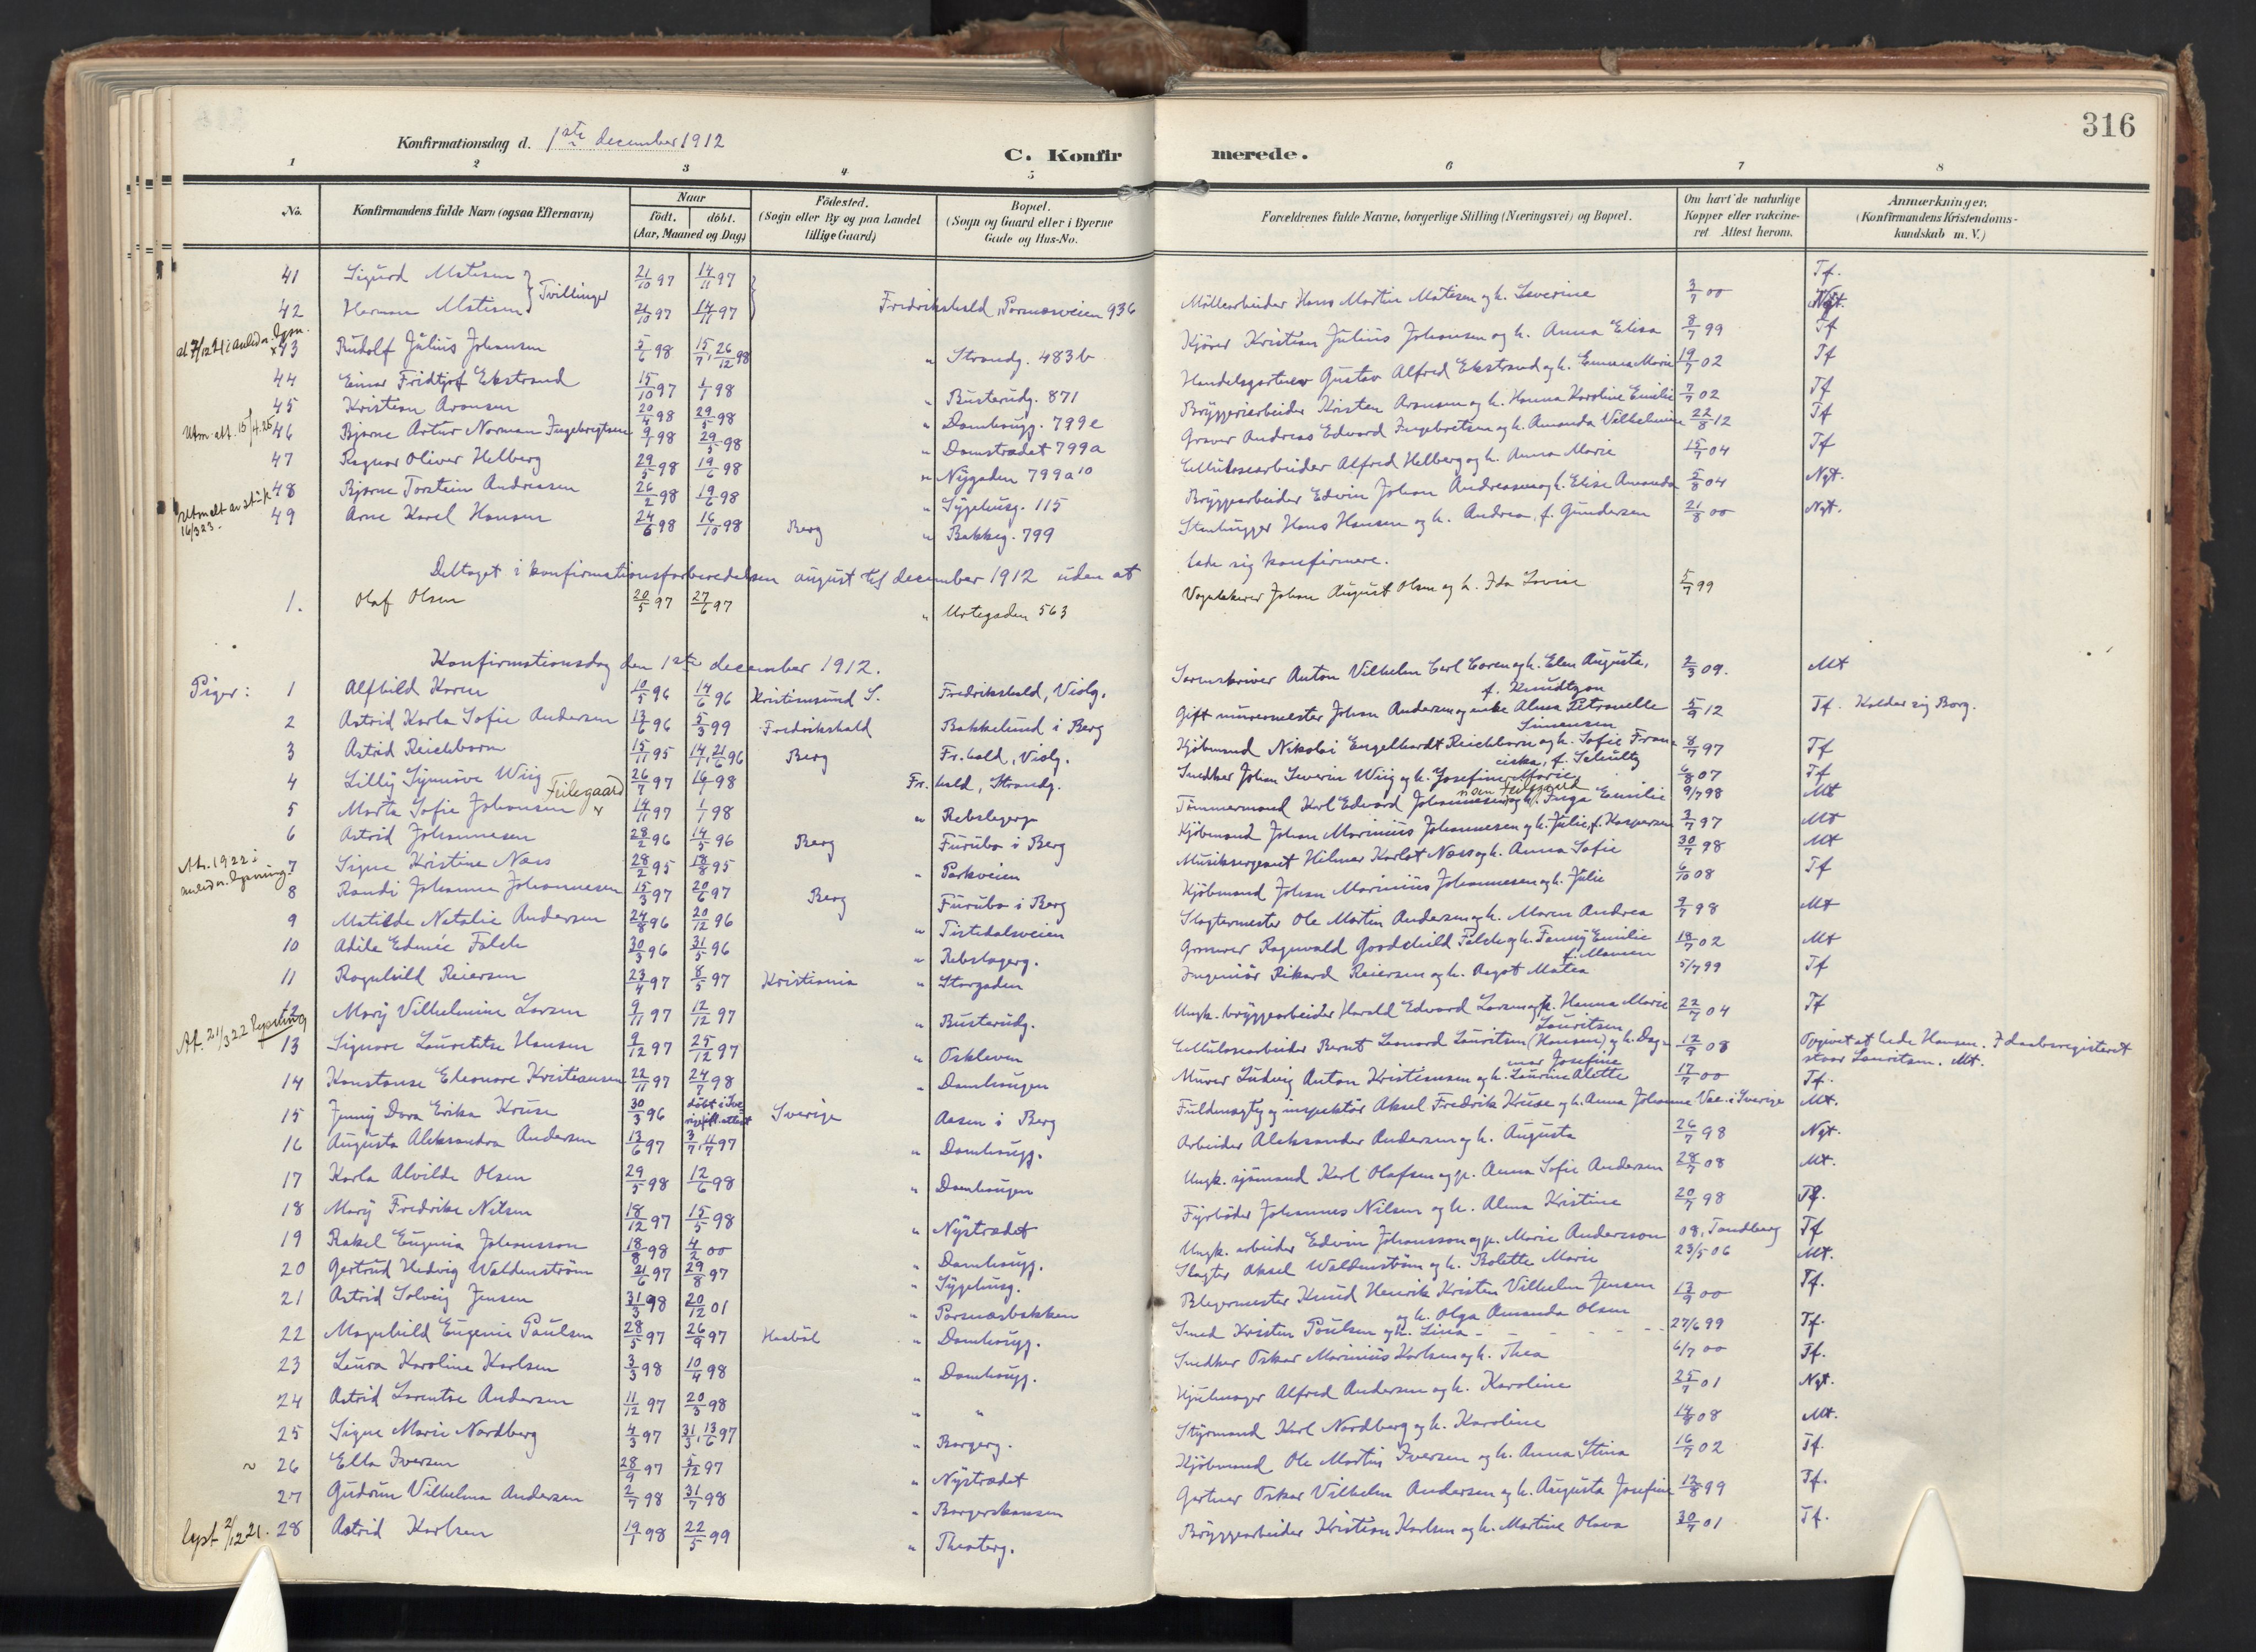 316
Konfirmationsdag d. 1ste december 1912
C. Konfirmerede.
1 2 3 4 5 6 7 8
No.
Konfirmandens fulde Navn (ogsaa Efternavn)
Naar
födt. döbt.
(Aar, Maaned og Dag)
Födested.
(Sogn eller By og paa Landet
tillige Gaard)
Bopæl.
(Sogn og Gaard eller i Byerne
Gade og Hus-No.
Forældrenes fulde Navne, borgerlige Stilling (Næringsvei) og Bopæl.
Om havt de naturlige
Kopper eller vakcine-
ret Attest herom.
Anmærkninger.
(Konfirmandens Kristendoms-
kundskab m. V.)
41 Sigurd Matisen } Tvillinger 21/10 97 14/11 97 Tf.
42 Herman Matisen 21/10 97 14/11 97 Fredrikshald, Porsnæsveien 936 Møllearbeider Hans Martin Matisen og h. Severine 3/7 00 Ngt.
43 Rudolf Julius Johansen 5/6 98 15/7, 26/12 98 " Strandg. 483b Kjører Kristian Julius Johansen og h. Anna Elisa 8/7 99 Tf
44 Einar Fridtjof Ekstrand 15/10 97 1/1 98 " Busterudg. 871 Handelsgartner Gustav Alfred Ekstrand og h. Emma Marie 19/7 02 Tf
45 Kristian Aronsen 20/4 98 29/5 98 " Damhaugg. 799e Bryggeriarbeider Kristen Aronsen og h. Hanna Karoline Emilie 7/7 02 Tf
Utm. att. 15/4.26 46 Bjarne Artur Norman Ingebrigtsen 9/1 98 29/5 98 " Damstrædet 799a Graver Andreas Edvard Ingebretsen og h. Amanda Vilhelmine 22/8 12 Tf
47 Ragnar Oliver Helberg 29/5 98 19/6 98 " Nygaden 799a10 Cellulosearbeider Alfred Helberg og h. Anna Marie 15/7 04 Tf
48 Bjarne Torstein Andreasen 26/2 98 19/6 98 " Sygehusg. 115 Bryggearbeider Edvin Johan Andreasen og h. Elise Amanda 5/8 04 Ngt.
16/3 23. 49 Arne Karel Hansen 24/6 98 16/10 98 Berg " Bakkeg. 799 Stenhugger Hans Hansen og h. Andrea, f. Gundersen 21/8 00 Ngt.
Deltaget i konfirmationsforberedelsen august til december 1912 uden at lade sig konfirmere.
1. Olaf Olsen 20/5 97 27/6 97 " Urtegaden 563 Vognlakerer Johan August Olsen og h. Ida Lovise 5/7 99
Konfirmationsdag den 1ste december 1912.
Piger: 1 Alfhild Koren 10/5 96 14/6 96 Kristiansund S. Fredrikshald, Violg. Sorenskriver Anton Vilhelm Carl Coren og h. Elen Augusta, f. Knudtzon 2/3 09. Mt
2 Astrid Karla Sofie Andersen 13/6 96 5/3 99 Fredrikshald Bakkelund i Berg Gift murermester Johan Andersen og enke Alma Petronelle Simensen 5/9 12 Tf. Kalder sig Borg.
3 Astrid Reichborn 15/11 95 14/1, 21/6 96 Berg Fr.hald, Violg. Kjöbmand Nikolai Engelhardt Reichborn og h. Sofie Franciska, f. Schultz 8/7 97 Tf
4 Lilly Synnöve Wiig 26/7 97 16/1 98 Fr.hald, Strandg. Snedker Johan Severin Wiig og h. Josefine Marie 6/8 07 Tf
5 Marta Sofie Johansen Feilegaard 14/11 97 1/1 98 " Rebslagerg. Tömmermand Karl Edvard Johannesen og h. Inga Emilie 9/7 98 Mt
6 Astrid Johannesen 28/2 96 14/5 96 Berg Furubo i Berg Kjöbmand Johan Marinius Johannesen og h. Julie, f. Kaspersen 2/7 97 Mt
7 Signe Kristine Næss 28/2 95 18/8 95 " Parkveien Musiksergeant Hilmar Karlot Næss og h. Anna Sofie 30/7 98 Mt
8 Randi Johanne Johannesen 15/3 97 20/6 97 Berg Furubo i Berg Kjöbmand Johan Marinius Johannesen og h. Julie 6/10 08 Tf
9 Matilde Natalie Andersen 24/8 96 20/12 96 " Tistedalsveien Slagtermester Ole Martin Andersen og h. Maren Andrea 9/7 98 Mt
10 Adile Edmée Falch 30/3 96 31/5 96 " Rebslagerg. Grosserer Ragnvald Goodchild Falch og h. Fanny Emilie 18/7 02 Mt
11 Ragnhild Reiersen 23/4 97 8/5 97 Kristiania " Storgaden Ingeniör Rikard Reiersen og h. Ragot Matea 5/7 99 Tf
12 Mary Vilhelmine Larsen 9/11 97 12/12 97 " Busterudg. Ungk. bryggearbeider Harald Edvard Larsen og p. Hanna Marie Lauritsen 22/7 04 Tf
Af. 21/3 22 13 Signore Lauretitse Hansen 9/12 97 25/12 97 " Oskleven Cellulosearbeider Bernt Leonard Lauritsen (Hansen) og h. Dagmar Josefine 12/9 08 Opgivet at hede Hansen. I daabsregisteret staar Lauritsen. Mt.
14 Konstanse Eleonore Kristiansen 22/11 97 24/7 98 " Damhaugen Murer Ludvig Anton Kristiansen og h. Laurine Alette 17/7 00 Tf.
15 Jenny Dora Erika Kruse 30/3 96 döbt i Sverige ifl. attest Sverige Aasen i Berg Fuldmægtig og inspektör Aksel Fredrik Kruse og h. Anna Johanne Vac. i Sverige Mt.
16 Augusta Aleksandra Andersen 13/6 97 3/7, 11/7 97 " Damhaugg. Arbeider Aleksander Andersen og h. Augusta 26/7 98 Ngt.
17 Karla Alvilde Olsen 29/5 98 12/6 98 " Damhaugen Ungk. sjömand Karl Olafsen og p. Anna Sofie Andersen 28/7 08 Mt.
18 Mary Fredrike Nilsen 18/12 97 15/5 98 " Nystrædet Fyrböder Johannes Nilsen og h. Alma Kristine 20/7 98 Tf.
19 Rakel Eugenia Johansson 18/8 98 4/2 00 " Damhaugg. Ungk. arbeider Edvin Johansson og p. Marie Andersson 08, Tandberg Tf
20 Gertrud Hedvig Waldenström 21/6 97 29/8 97 " Sygehusg. Slagter Aksel Waldenström og h. Bolette Marie 23/5 06 Mt.
21 Astrid Solveig Jensen 31/3 98 20/12 01 " Porsnæsbakken Blegermester Knud Henrik Kristen Vilhelm Jensen og h. Olga Amanda Olsen 13/9 00 Tf.
22 Magnhild Eugenie Paulsen 28/5 97 26/9 97 Haaböl " Damhaugg. Smed Kristen Paulsen og h. Lina - - - 27/6 99 Tf.
23 Laura Karoline Karlsen 3/3 98 10/4 98 " Damhaugg. Snedker Oskar Marinius Karlsen og h. Thea 6/7 00 Tf.
24 Astrid Lorentse Andersen 11/12 97 20/3 98 " " Hjulmager Alfred Andersen og h. Karoline 25/7 01 Ngt.
25 Signe Marie Nordberg 4/3 97 31/3, 13/6 97 " Borgerg. Styrmand Karl Nordberg og h. Karoline 14/8 08 Mt.
26 Ella Iversen 28/9 97 5/12 97 " Nystrædet Kjöbmand Ole Martin Iversen og h. Anna Stina 16/7 02 Tf.
27 Gudrun Vilhelma Andersen 2/7 98 31/7 98 " Borgerskansen Gartner Oskar Vilhelm Andersen og h. Augusta Josefine 12/8 99 Tf.
lyst 2/12 21. 28 Astrid Karlsen 19/1 98 22/5 99 " Theaterg. Bryggearbeider Kristian Karlsen og h. Martine Olava 30/7 01 Tf.